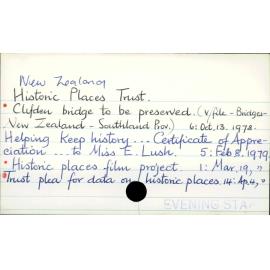 New Zealand
Historic Places Trust.
Clifden bridge to be preserved. (v.file - Bridges -
New Zealand - Southland Prov.) 6: Oct. 13. 1978.
Helping keep history... Certificate of Appre-
ciation... to Miss E. Lush. 5: Feb 8. 1979
Historic places film project. 1: Mar. 19, "
Trust plea for data on historic places. 14: Ap. 4, "
EVENING STAR